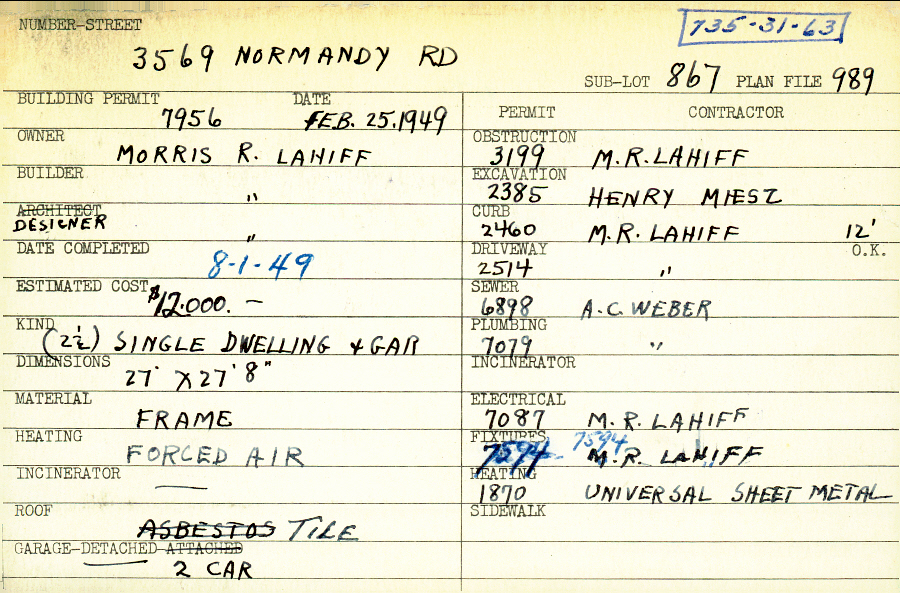 NUMBER-STREET
735-31-63
3569 NORMANDY RD
SUB-LOT 867 PLAN FILE 989
BUILDING PERMIT DATE
7956 FEB. 25.1949
OWNER
MORRIS R. LAHIFF
BUILDER
"
ARCHITECT
DESIGNER
"
DATE COMPLETED
8-1-49
ESTIMATED COST
$12.000. —
KIND
(2½) SINGLE DWELLING & GAR
DIMENSIONS
27' X 27' 8"
MATERIAL
FRAME
HEATING
FORCED AIR
INCINERATOR
—
ROOF
ASBESTOS TILE
GARAGE-DETACHED-ATTACHED
2 CAR
PERMIT CONTRACTOR
OBSTRUCTION
3199 M.R. LAHIFF
EXCAVATION
2385 HENRY MIESZ
CURB
2460 M.R. LAHIFF 12'
DRIVEWAY O.K.
2514 "
SEWER
6898 A.C. WEBER
PLUMBING
7079 "
INCINERATOR
ELECTRICAL
7087 M.R. LAHIFF
FIXTURES 7594
7594 M.R. LAHIFF
HEATING
1870 UNIVERSAL SHEET METAL
SIDEWALK